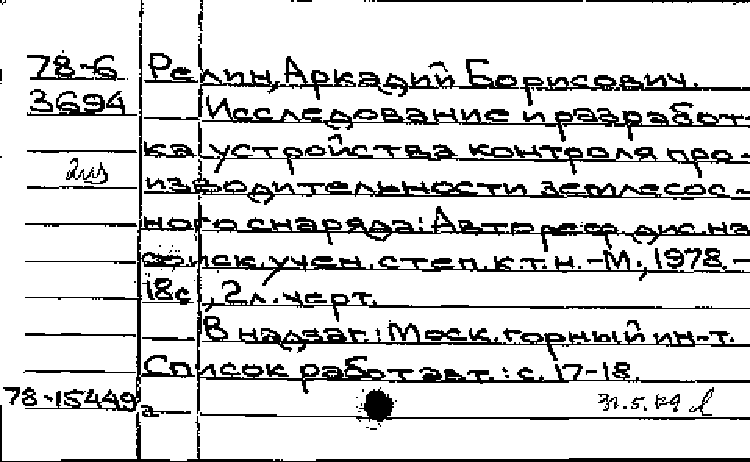 78-6 Релин, Аркадий Борисович.
3694 Исследование и разработ-
ка устройства контроля про-
2из
изводительности землесос-
ного снаряда: Автореф. дис. на
соиск. учен. степ. к.т.н. - М., 1978. -
18с., 2 л. черт.
В надзаг.: Моск. горный ин-т.
Список работ авт.: с. 17-18.
78-15449а